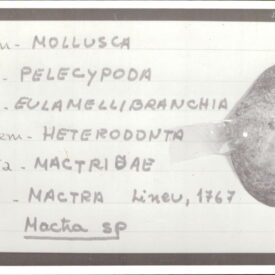 m - MOLLUSCA
. - PELECYPODA
. - EULAMELLIBRANCHIA
em - HETERODONTA
ia - MACTRIDAE
. - MACTRA Lineu, 1767
Mactra sp